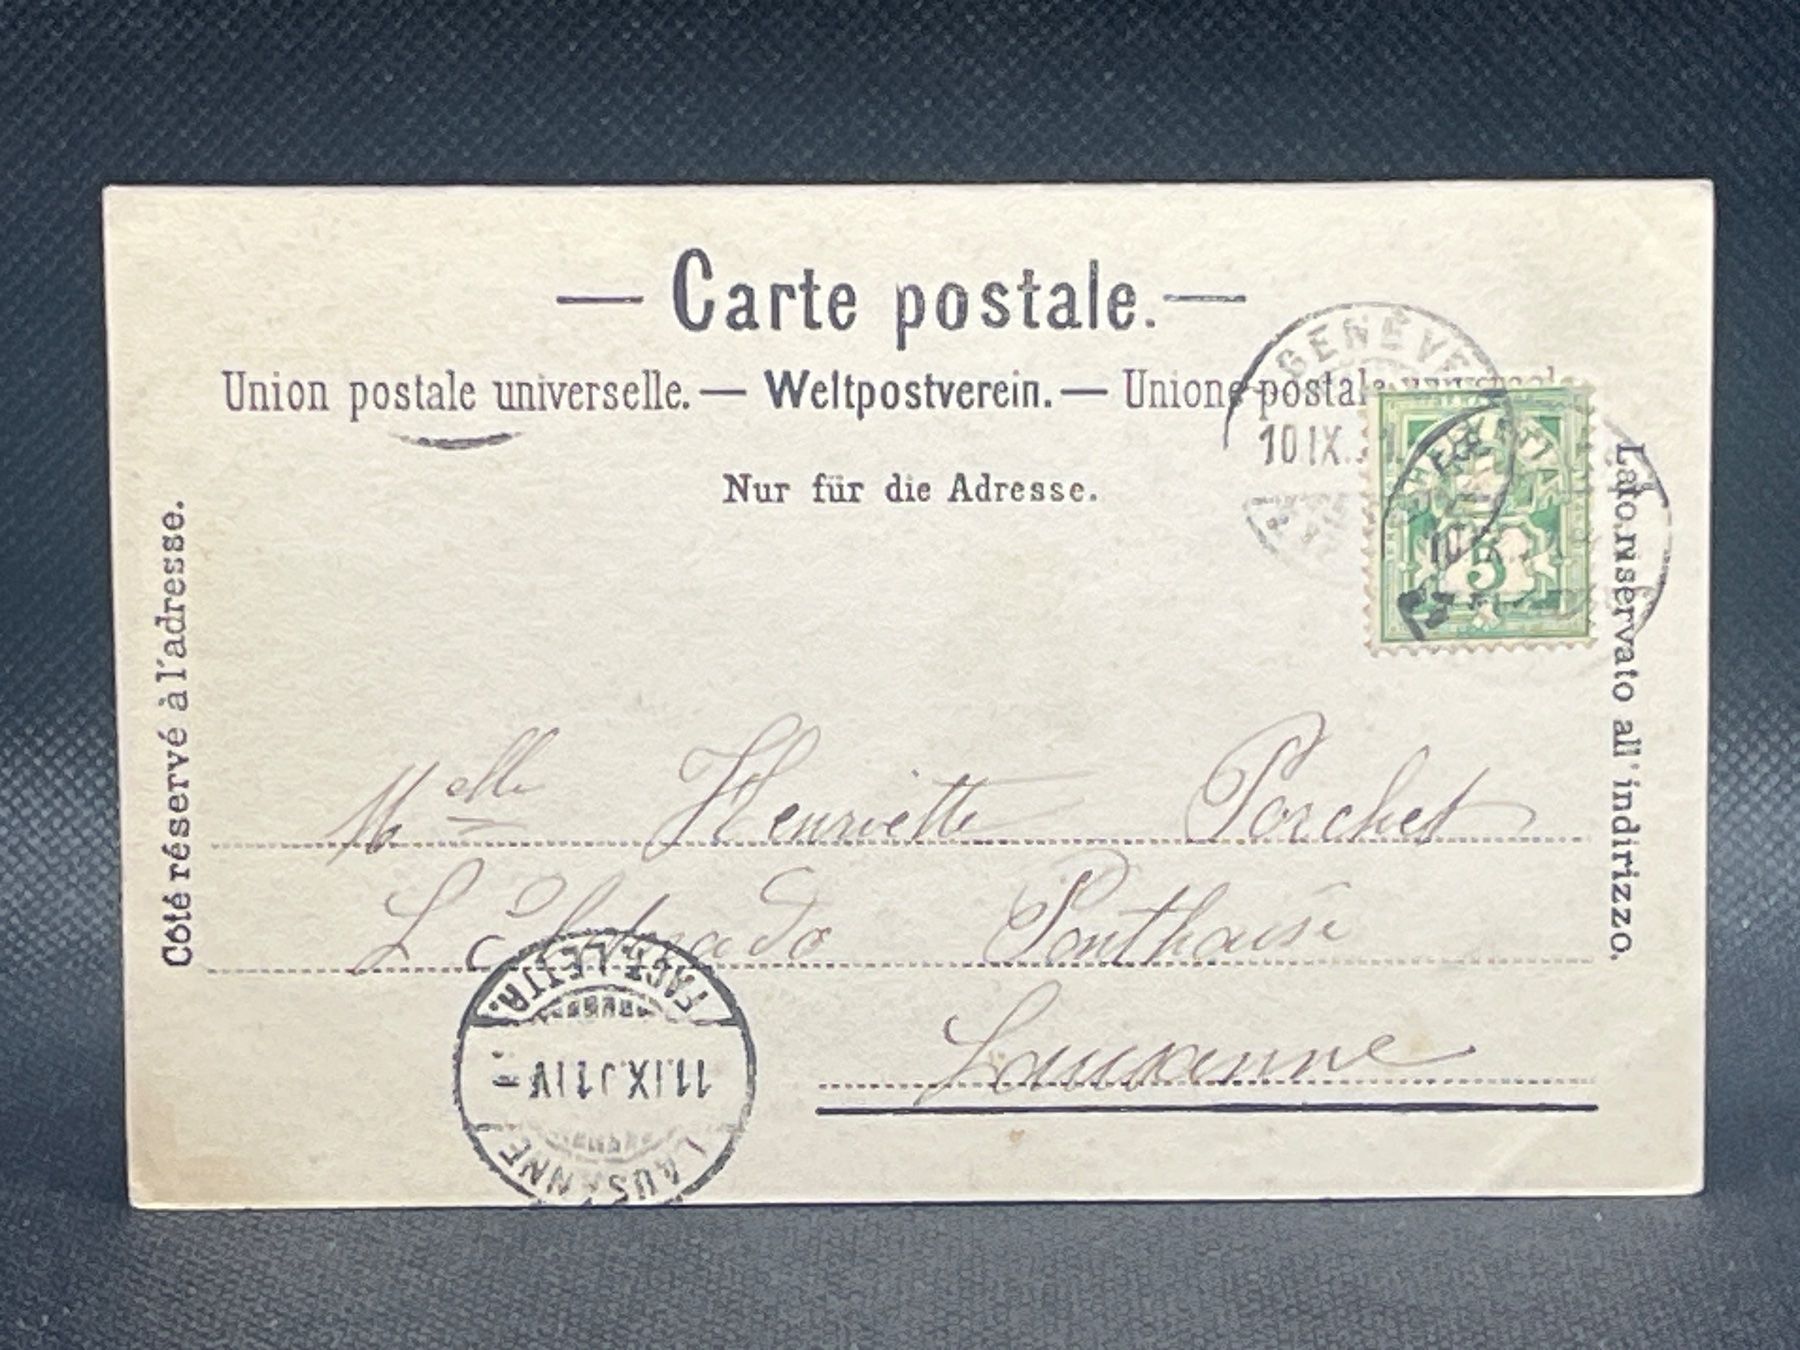 — Carte postale. —
Union postale universelle. — Weltpostverein. — Unione postale
Nur für die Adresse.
Côté réservé à l'adresse.
Lato riservato all' indirizzo.
GENÈVE
10 IX.
5
Melle Henriette Porchet
L'Eldorado Ponthaise
Lausanne
FACT. LETTR.
11.IX.01 IV
LAUSANNE